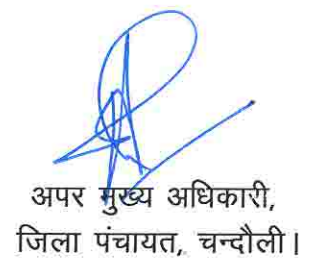 अपर मुख्य अधिकारी,
जिला पंचायत, चन्दौली।